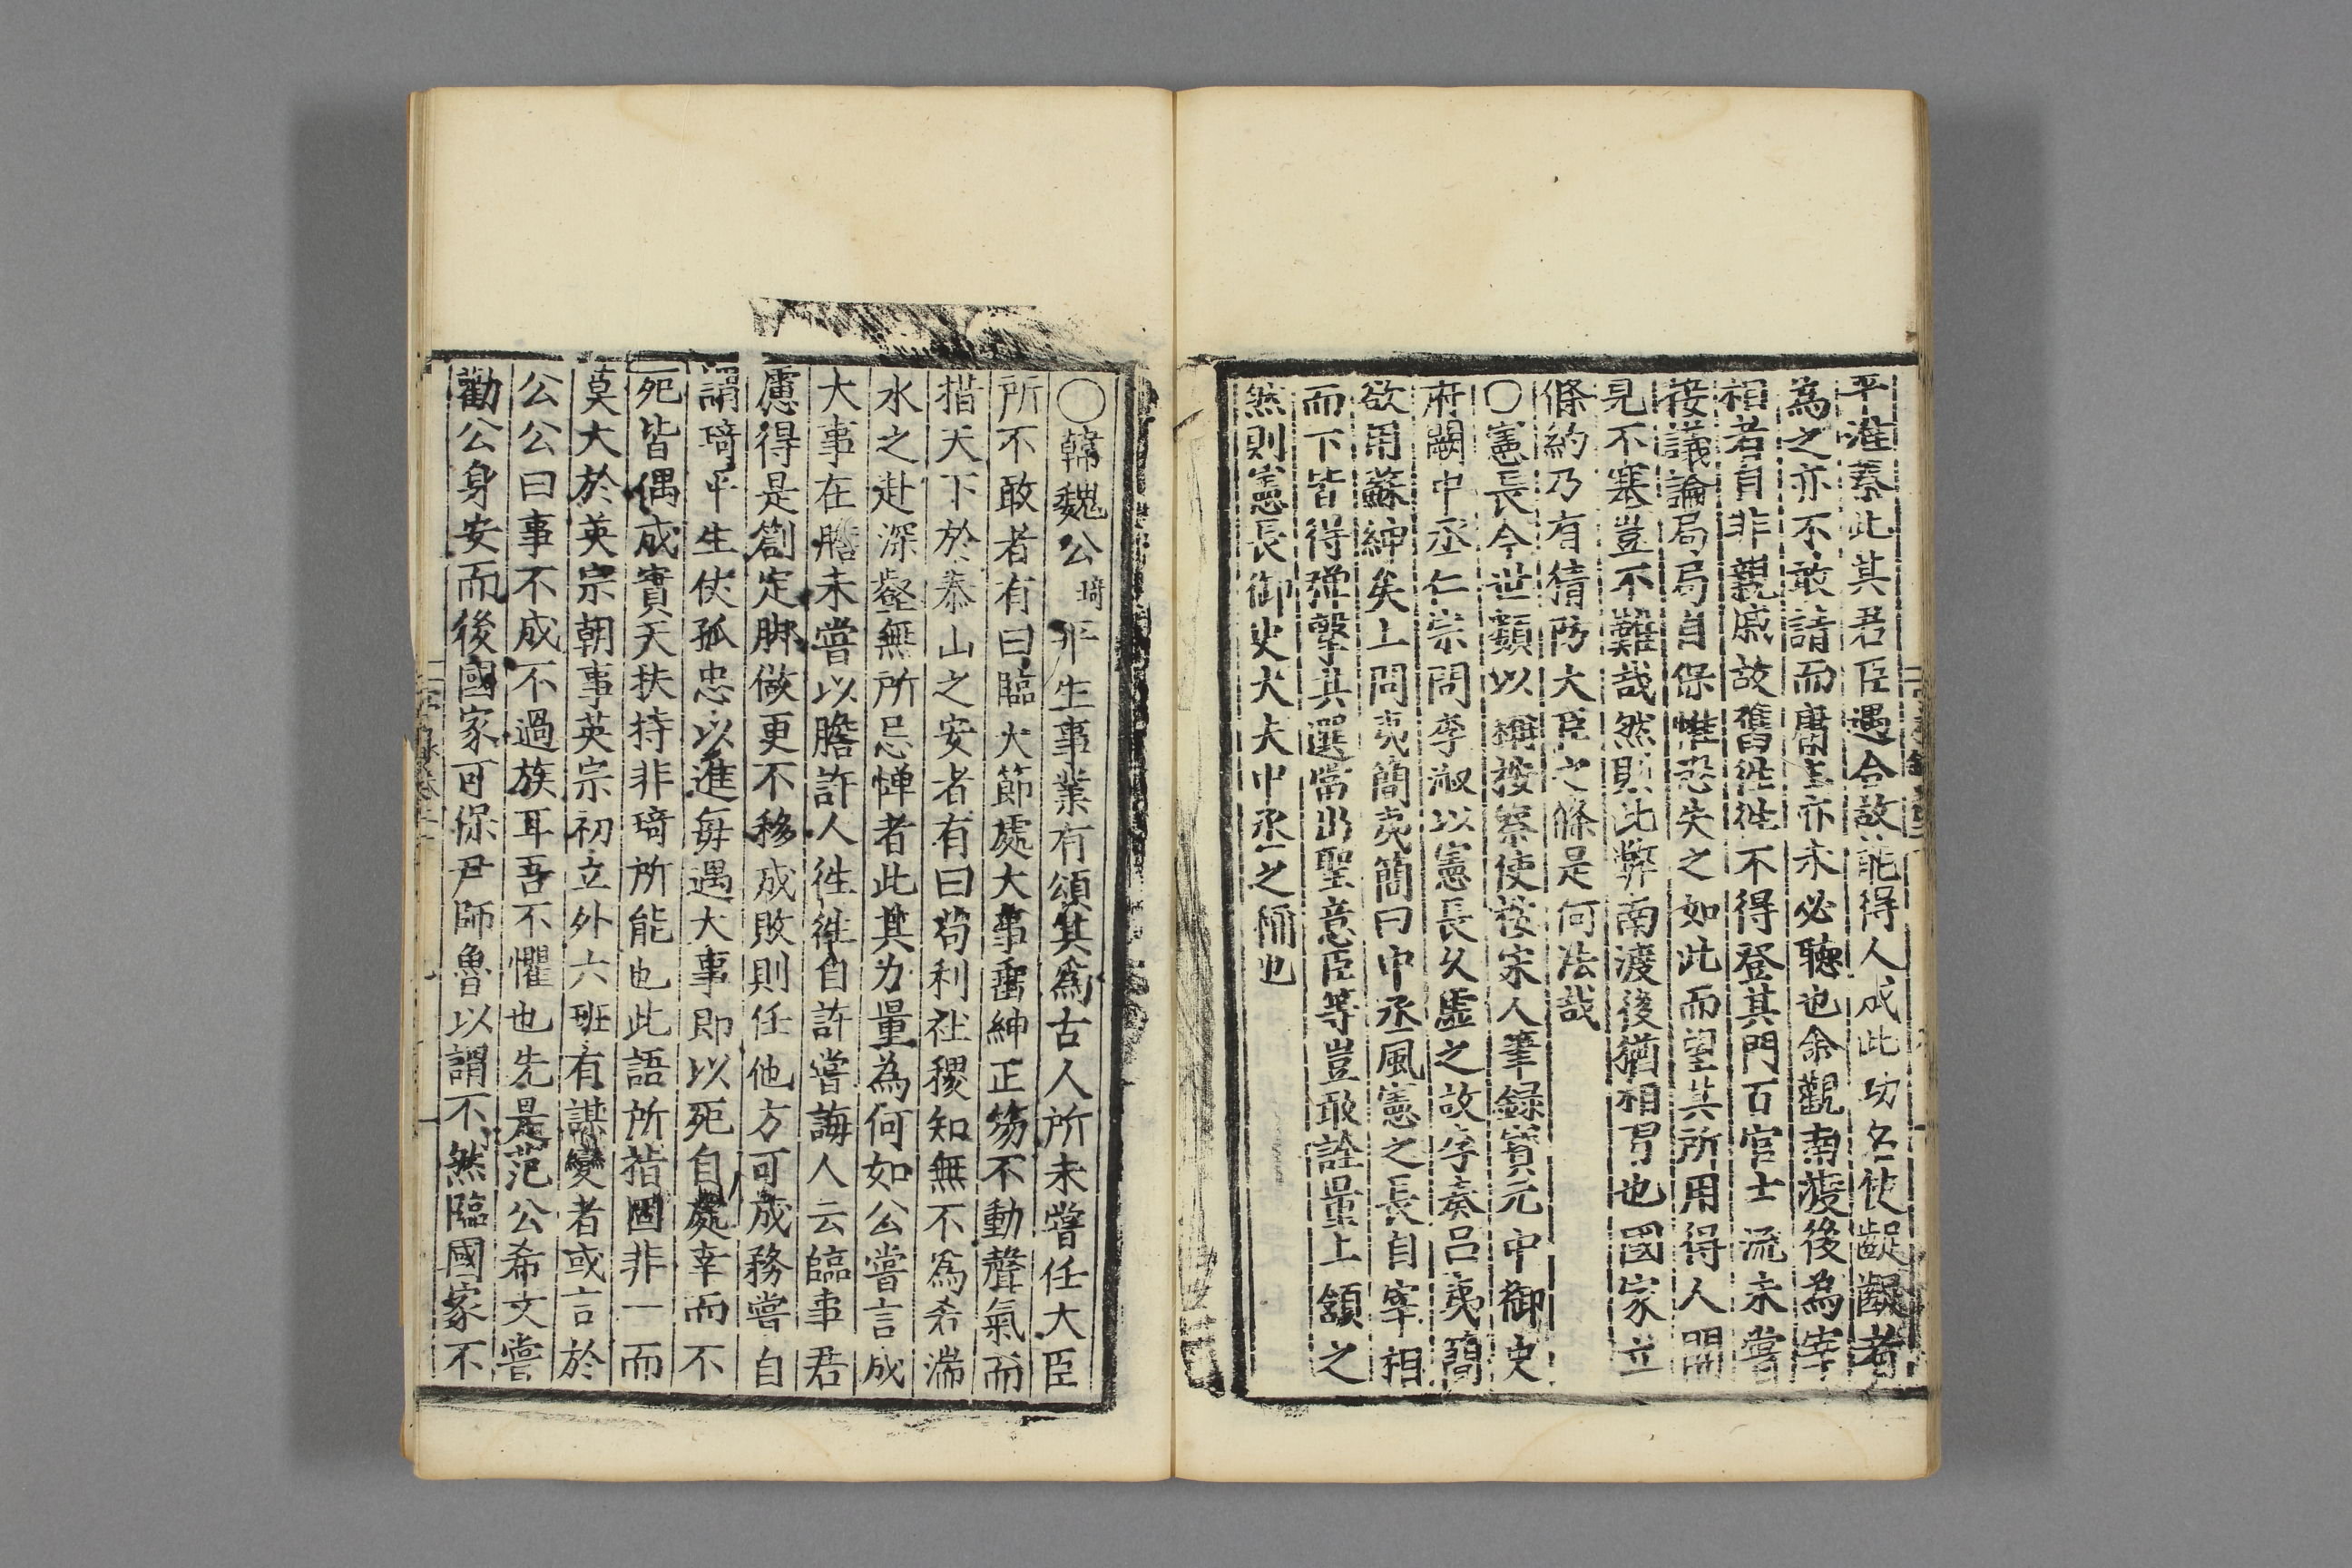 平淮蔡此其君臣遇合故能得人成此功名使齪齪者
為之亦不敢請而唐主亦未必聽也余觀南渡後為宰
相者自非親戚故舊徃徃不得登其門百官士流未嘗
接議論局局自保惟恐失之如此而望其所用得人聞
見不塞豈不難哉然則此弊南渡後猶相習也國家立
條約乃有猜防大臣之條是何法哉
○憲長今世類以稱按察使按宋人筆録寳元中御史
府闕中丞仁宗問李淑以憲長久虛之故淑奏呂夷簡
欲用蘇紳矣上問夷簡夷簡曰中丞風憲之長自宰相
而下皆得彈擊其選當出聖意臣等豈敢詮量上頷之
然則憲長御史大夫中丞之稱也
○韓魏公琦平生事業有頌其爲古人所未嘗任大臣
所不敢者有曰臨大節處大事垂紳正笏不動聲氣而
措天下於泰山之安者有曰苟利社稷知無不爲若湍
水之赴深壑無所忌憚者此其力量為何如公嘗言成
大事在膽未嘗以膽許人徃徃自許嘗誨人云臨事君
慮得是劄定脚做更不移成敗則任他方可成務嘗自
謂琦平生仗孤忠以進每遇大事即以死自處幸而不
死皆偶成實天扶持非琦所能也此語所指固非一而
莫大於英宗朝事英宗初立外六班有謀變者或言於
公公曰事不成不過族耳吾不懼也先是范公希文嘗
勸公身安而後國家可保尹師魯以謂不然臨國家不